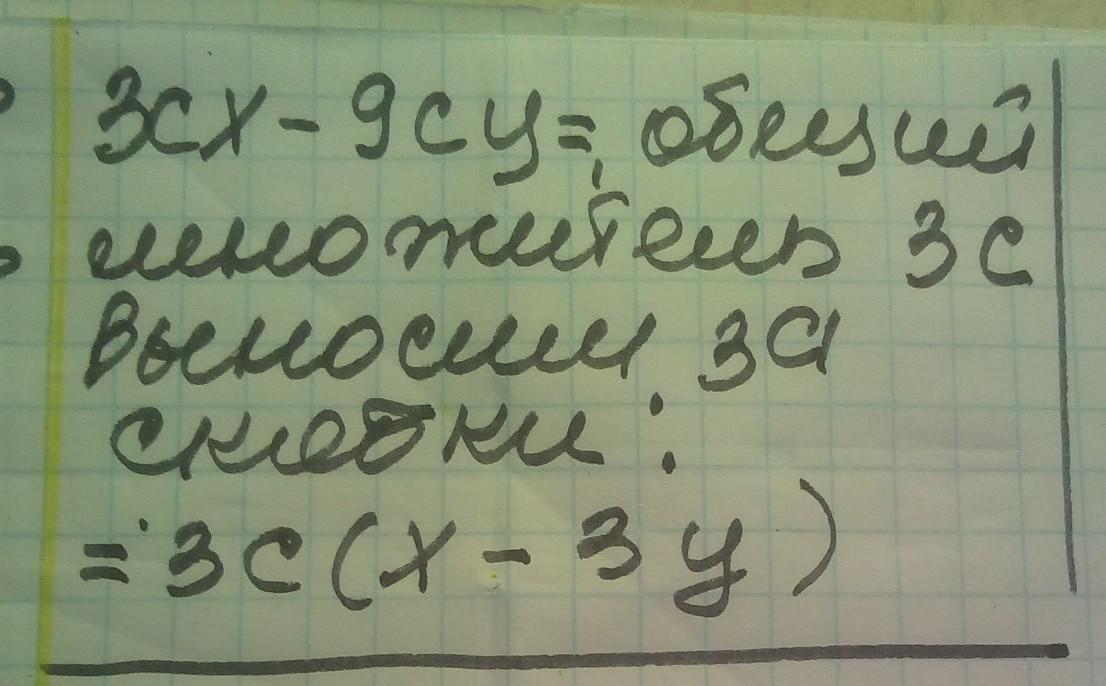 3cx - 9cy = общий
множитель 3с
выносим за
скобки:
= 3c(x - 3y)